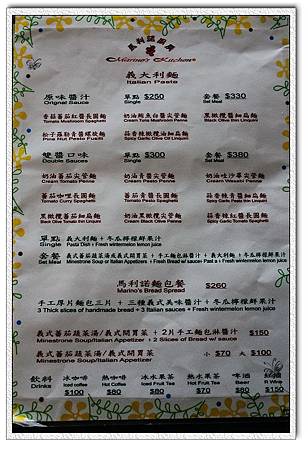 馬利諾廚房
Marino's Kitchen
義大利麵
Italian Pasta
原味醬汁 單點 $250 套餐 $330
Orignal Sauce Single Set Meal
香菇蕃茄紅醬長圓麵 奶油鮪魚白醬尖管麵 黑橄欖醬細扁麵
Tomato Mushroom Spaghetti Cream Tuna Mushroom Penne Black Olive thin Linguini
松子羅勒青醬螺旋麵 蒜香辣橄欖油細扁麵
Pina Nut Pesto Fusilli Spicy Garlic Olive Oil Thin Linguini
雙醬口味 單點 $300 套餐 $380
Double Sauces Single Set Meal
奶油蕃茄尖管麵 奶油青醬尖管麵 奶油哇沙單尖管麵
Cream Tomato Penne Cream Pesto Penne Cream Wasabi Penne
蕃茄咖哩長圓麵 蕃茄青醬長圓麵
Tomato Curry Spaghetti Tomato Pesto Spaghetti Spicy Garlic Pesto thin Linguini
黑橄欖蕃茄細扁麵 黑橄欖奶油尖管麵 蒜香辣紅醬長圓麵
Black Olive Tomato Thin Linguini Black Olive Cream Penne Spicy Garlic Tomato Spaghetti
單點 義大利麵 + 冬瓜檸檬鮮果汁
Single Pasta Dish + Fresh wintermelon lemon juice
套餐 義式蕃茄蔬菜湯或義式開胃菜 + 手工麵包醬汁 + 義大利麵 + 冬瓜檸檬鮮果汁
Set Meal Minestrone Soup or Italian Appetizers + Fresh Bread w/ sauce + Pasta + Fresh wintermelon lemon juice
馬利諾麵包餐 $260
Marino's Bread Spread
手工厚片麵包三片 + 三種義式美味醬汁 + 冬瓜檸檬鮮果汁
3 Thick slices of handmade bread + 3 Italian sauces + Fresh wintermelon lemon juice
義式蕃茄蔬菜湯/義式開胃菜 + 2片手工麵包淋醬汁 $150
Minestrone Soup/Italian Appetizer + 2 Slices of Bread w/ sauce
義式蕃茄蔬菜湯/義式開胃菜 小 $70 大 $100
Minestrone Soup/Italian Appetizer
飲料 冰咖啡 熱咖啡 冰水果茶 熱水果茶 啤酒 紅酒
Drinks Iced Coffee Hot coffee Iced Fruit Tea Hot Fruit Tea Beer R Wine
$100 $80 $80 $70 $80 $100